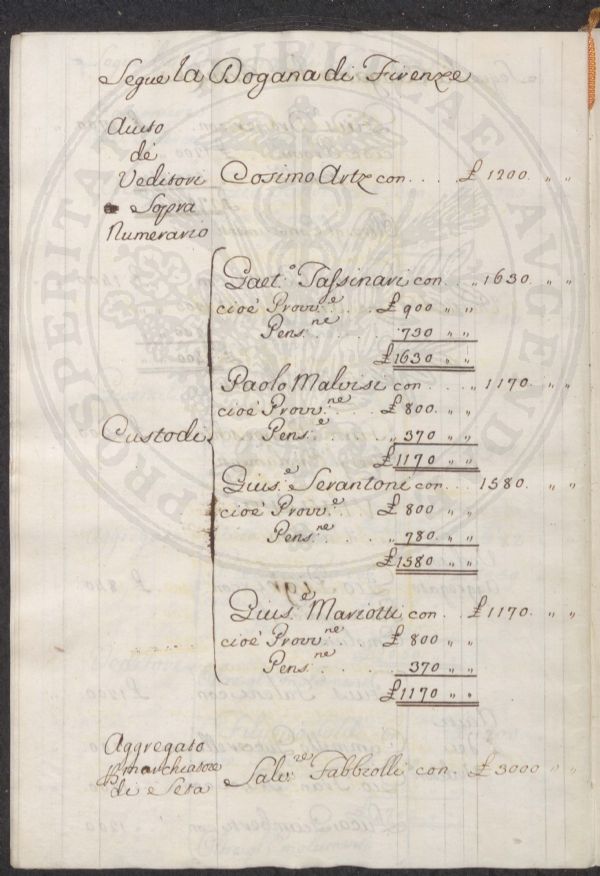 Segue la Dogana di Firenze
Aiuto
de
Veditori
e Sopra
Numerario
Cosimo Artz con . . . . £ 1200 " "
Custodi
Gaet.º Tassinari con . . " 1630 " "
cioè Provv.ne . . £ 900 " "
Pens.ne . . . 730 " "
£ 1630 " "
Paolo Malvisi con . . . " 1170 " "
cioè Provv.ne . . . £ 800 " "
Pens.e . . . " 370 " "
£ 1170 " "
Gius.e Serantoni con . . . 1580 " "
cioè Provv.e . . £ 800 " "
Pens.ne . . . " 780 " "
£ 1580 " "
Gius.e Mariotti con . . £ 1170 " "
cioè Provv.ne . . £ 800 " "
Pens.ne . . . . 370 " "
£ 1170 " "
Aggregato
marchiatore
di Seta
Salv.re Fabbrolli con . . £ 3000 " "
PROSPERITATI PUBLICAE AUGENDAE